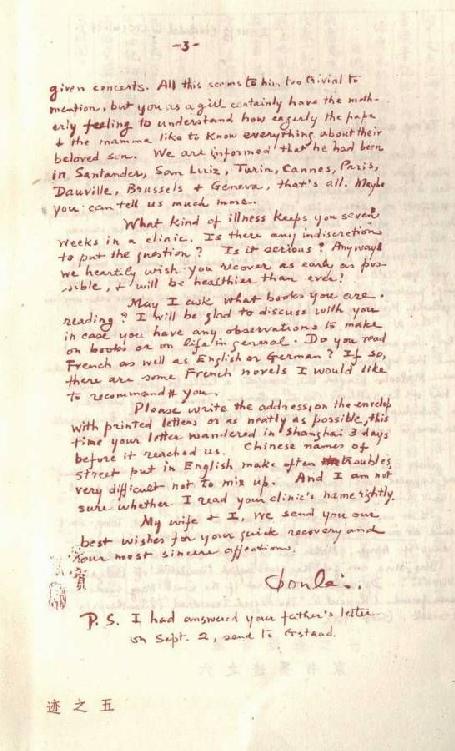 -3-
given concerts. All this seems to him too trivial to
mention, but you as a girl certainly have the moth-
erly feeling to understand how eagerly the papa
& the mamma like to know everything about their
beloved son. We are informed that he had been
in Santander, San Luiz, Turin, Cannes, Paris,
Dauville, Brussels & Geneva, that's all. Maybe
you can tell us much more.
What kind of illness keeps you seven
weeks in a clinic. Is there any indiscretion
to put the question? Is it serious? Anyways
we heartily wish you recover as early as pos-
sible, & will be healthier than ever!
May I ask what books you are
reading? I will be glad to discuss with you
in case you have any observations to make
on books or on life in general. Do you read
French as well as English or German? If so,
there are some French novels I would like
to recommend you.
Please write the address, on the envelop
with printed letters or as neatly as possible, this
time your letter wandered in Shanghai 3 days
before it reached us. Chinese names of
street put in English make often troubles,
very difficult not to mix up. And I am not
sure whether I read your clinic's name rightly.
My wife & I, we send you our
best wishes for your quick recovery and
our most sincere affections.
P.S. I had answered your father's letter
on Sept. 2, send to Gstaad.
迹之五